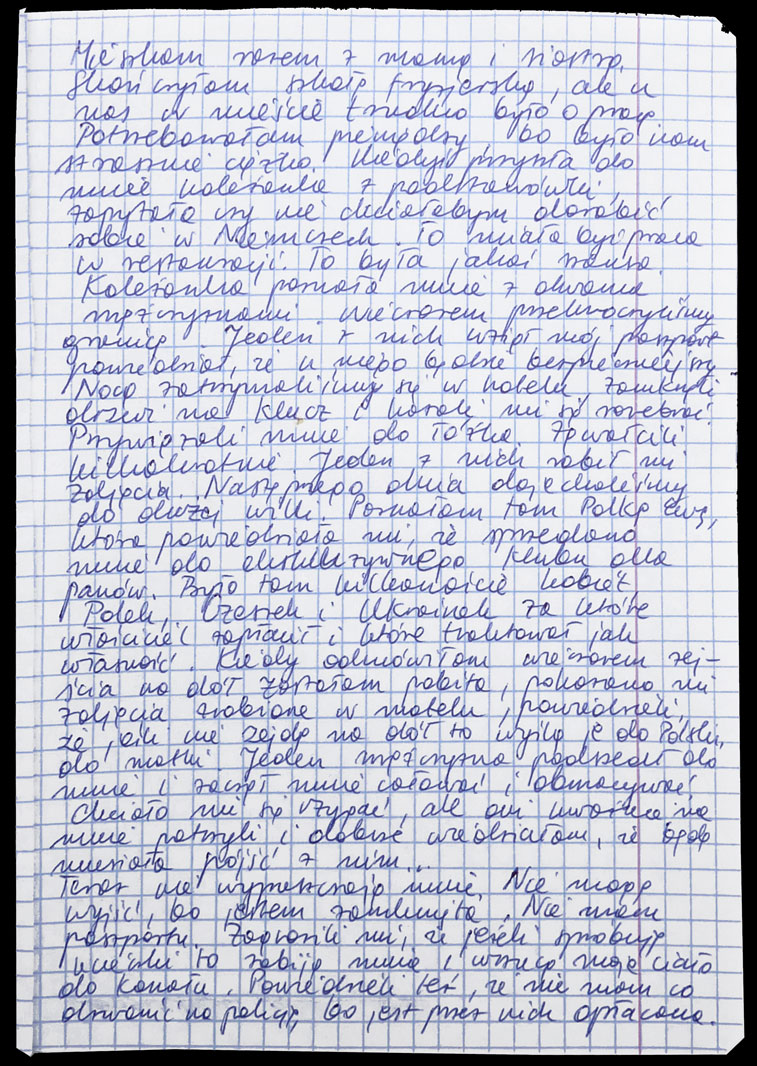 Mieszkam razem z mamą i siostrą.
Skończyłam szkołę fryzjerską, ale u
nas w mieście trudno było o pracę
Potrzebowałam pieniędzy bo było nam
strasznie ciężko. Kiedyś przyszła do
mnie koleżanka z podstawówki,
zapytała czy nie chciałabym dorobić
sobie w Niemczech. To miała być praca
w restauracji. To była jakaś szansa.
Koleżanka poznała mnie z dwoma
mężczyznami. Wieczorem przekroczyliśmy
granicę. Jeden z nich wziął mój paszport
powiedział, że u niego będzie bezpieczniejszy
Nocą zatrzymaliśmy się w hotelu, zamknęli
drzwi na klucz i kazali mi się rozebrać.
Przywiązali mnie do łóżka. Zgwałcili
kilkakrotnie. Jeden z nich robił mi
zdjęcia. Następnego dnia dojechaliśmy
do dużej willi. Poznałam tam Polkę Ewę,
która powiedziała mi, że sprzedano
mnie do ekskluzywnego klubu dla
panów. Było tam kilkanaście kobiet
Polek, Czeszek i Ukrainek za które
właściciel zapłacił i które traktował jak
własność. Kiedy odmówiłam wieczorem zej-
ścia na dół zostałam pobita, pokazano mi
zdjęcia zrobione w motelu, powiedzieli,
że jeśli nie zejdę na dół to wyślą je do Polski,
do matki. Jeden mężczyzna podszedł do
mnie i zaczął mnie całować i obmacywać
Chciało mi się rzygać, ale oni uważnie na
mnie patrzyli i dobrze wiedziałam, że będę
musiała pójść z nim...
Teraz nie wypuszczają mnie. Nie mogę
wyjść, bo jestem zamknięta. Nie mam
paszportu. Zagrozili mi, że jeżeli spróbuję
ucieczki to zabiją mnie i wrzucą moje ciało
do kanału. Powiedzieli też, że nie mam co
dzwonić na policję, bo jest przez nich opłacana.